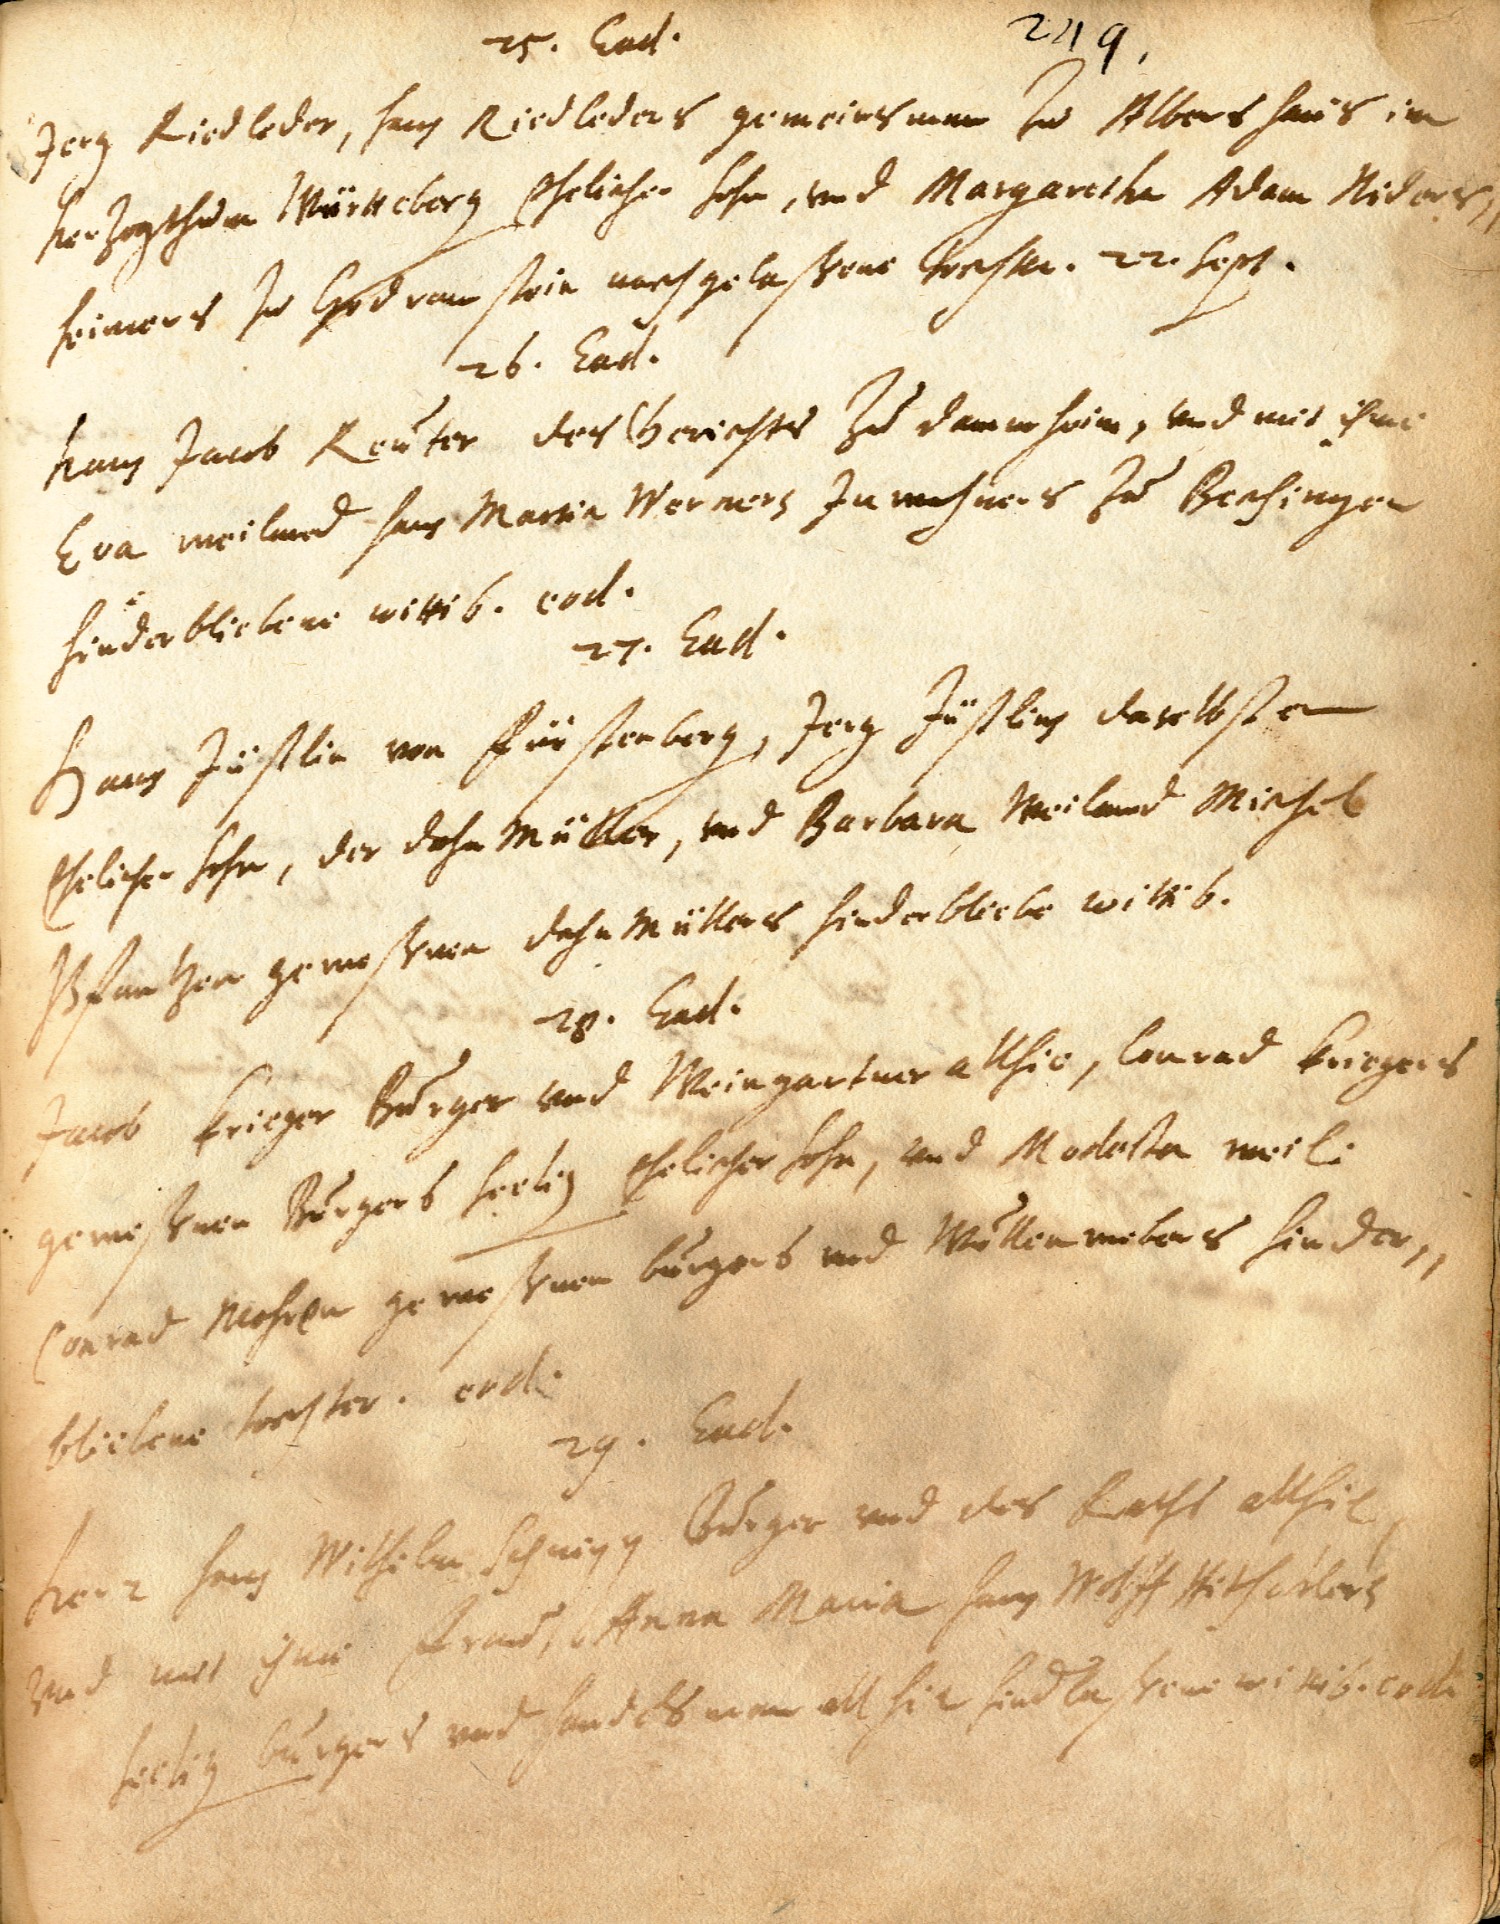 25. Ead.
249.
Jerg Riedleder, Hans Riedleders gemeinsman zu Albershaus im
Herzogthum Württeberg Ehelicher Sohn, vnd Margaretha Adam Niders,,
heimers zu Godramstein nachgelaßene Tochter. 22. Sept.
26. Ead.
Hans Jacob Reuter des Gerichts zu Dammheim, vnd mit ihme
Eva weiland Hans Martin Werners Inwohners zu Bechingen
hinderbliebene wittib. eod.
27. Ead.
Hans Füstlin von Fürstenberg, Jerg Füstlins daselbsten
Ehelicher Sohn, der Müller, vnd Barbara Weiland Michel
geweßnen Müllers hinderbliebe wittib.
28. Ead.
Jacob Krieger Burger vnd Weingartner allhie, Conrad Kriegers
geweßnen Burgers seelig Ehelicher Sohn, vnd Modesta weil.
Conrad Mohren geweßnen burgers vnd Wullenwebers hinder,,
bliebene tochter. eod.
29. Ead.
Herr Hans Wilhelm Burger vnd des Raths allhie,
vnd mit ihme Anna Maria Hans Wolff
seelig burgers vnd handelsman allhie hindlaßene wittib. eod.